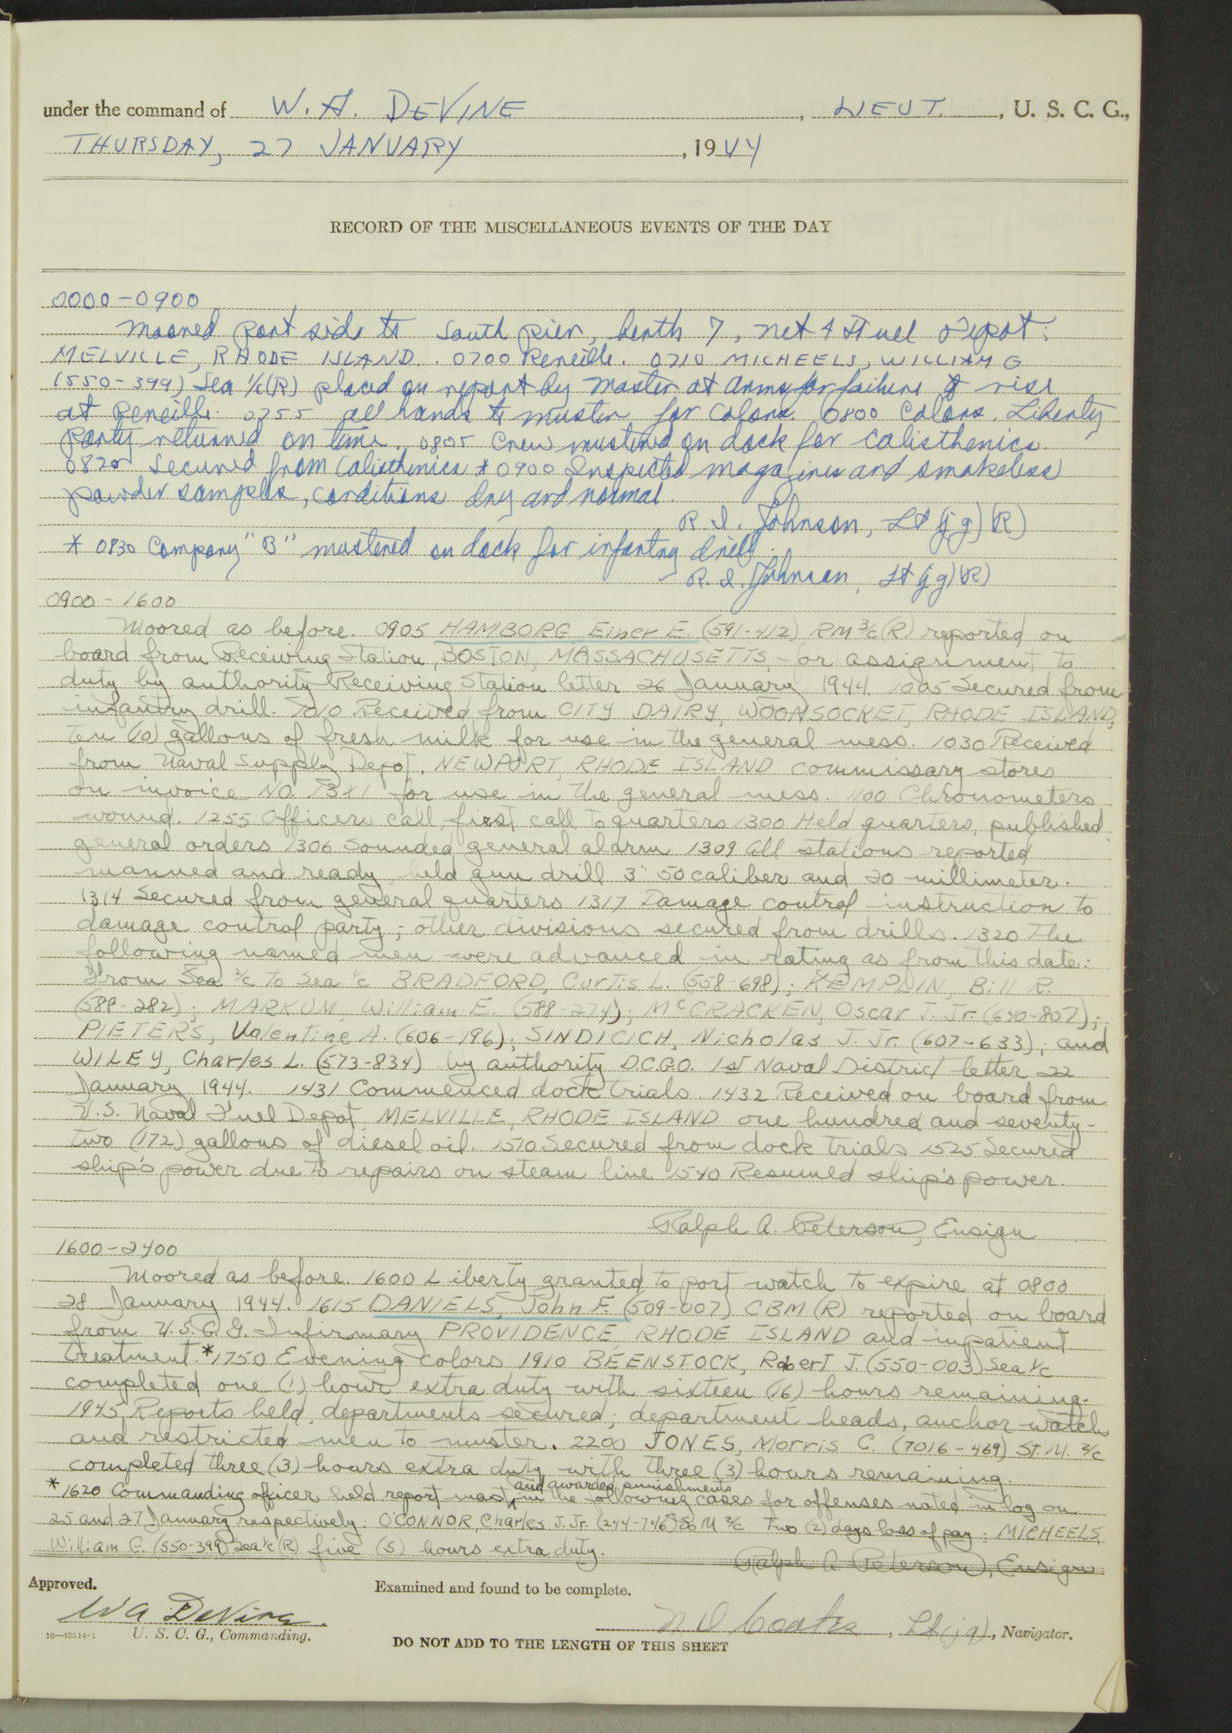 under the command of W. A. DEVINE, LIEUT., U. S. C. G.,
THURSDAY, 27 JANUARY, 1944
RECORD OF THE MISCELLANEOUS EVENTS OF THE DAY
0000-0900
Moored port side to South pier, berth 7, net & Fuel Depot:
MELVILLE, RHODE ISLAND. 0700 Reveille. 0710 MICHEELS, WILLIAM G
(550-399) Sea 1/c(R) placed on report by Master at Arms for failure to rise
at Reveille. 0755 all hands to muster for Colors. 0800 Colors. Liberty
party returned on time. 0805 Crew mustered on dock for calisthenics.
0820 Secured from Calisthenics * 0900 Inspected magazines and smokeless
powder samples, conditions dry and normal.
R. I. Johnson, Lt (jg) (R)
* 0830 Company "B" mustered on dock for infantry drill.
R. I. Johnson, Lt (jg) (R)
0900-1600
Moored as before. 0905 HAMBORG, Einer E. (591-412) RM 3/c (R) reported on
board from Receiving Station, BOSTON, MASSACHUSETTS for assignment to
duty by authority Receiving Station letter 26 January 1944. 1005 Secured from
infantry drill. 1010 Received from CITY DAIRY, WOONSOCKET, RHODE ISLAND,
ten (10) gallons of fresh milk for use in the general mess. 1030 Received
from Naval Supply Depot, NEWPORT, RHODE ISLAND commissary stores
on invoice NO. for use in the general mess. 1100 Chronometers
wound. 1255 Officers call, first call to quarters 1300 Held quarters, published
general orders 1306 Sounded general alarm 1309 All stations reported
manned and ready, held gun drill 3" 50 caliber and 20 millimeter.
1314 Secured from general quarters 1317 Damage control instruction to
damage control party; other divisions secured from drills. 1320 The
following named men were advanced in rating as from this date:
From Sea 2/c to Sea 1/c BRADFORD, Curtis L. (558-698); KEMPLIN, Bill R.
(588-282); MARKUM, William E. (588-274); McCRACKEN, Oscar J. Jr. (640-807);
PIETERS, Valentine A. (606-196); SINDICICH, Nicholas J. Jr. (607-633); and
WILEY, Charles L. (573-834) by authority D.C.G.O. 1st Naval District letter 22
January 1944. 1431 Commenced dock trials. 1432 Received on board from
U.S. Naval Fuel Depot, MELVILLE, RHODE ISLAND one hundred and seventy-
two (172) gallons of diesel oil. 1510 Secured from dock trials 1525 Secured
ship's power due to repairs on steam line 1540 Resumed ship's power.
Ralph A. Peterson, Ensign
1600-2400
Moored as before. 1600 Liberty granted to port watch to expire at 0800
28 January 1944. 1615 DANIELS, John F. (509-007) CBM (R) reported on board
from U.S.C.G. Infirmary PROVIDENCE, RHODE ISLAND and inpatient
treatment. * 1750 Evening colors 1910 BEENSTOCK, Robert J. (550-003) Sea 1/c
completed one (1) hour extra duty with sixteen (16) hours remaining.
1945 Reports held, departments secured; department heads, anchor watch
and restricted men to muster. 2200 JONES, Morris C. (7016-469) St. M. 3/c
completed three (3) hours extra duty with three (3) hours remaining.
and awarded punishments
* 1620 Commanding officer held report mast in the following cases for offenses noted in log on
25 and 27 January respectively: O'CONNOR, Charles J. Jr. (244-746) SoM 3/c Two (2) days loss of pay; MICHEELS,
William G. (550-399) Sea 1/c (R) five (5) hours extra duty.
Ralph A. Peterson, Ensign
Approved.
Examined and found to be complete.
W A DeVine
N D Coates, Lt (jg), Navigator.
U. S. C. G., Commanding.
DO NOT ADD TO THE LENGTH OF THIS SHEET